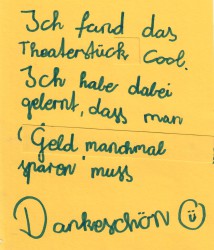 Ich fand das
Theaterstück cool.
Ich habe dabei
gelernt, dass man
Geld manchmal
sparen muss
Dankeschön ü